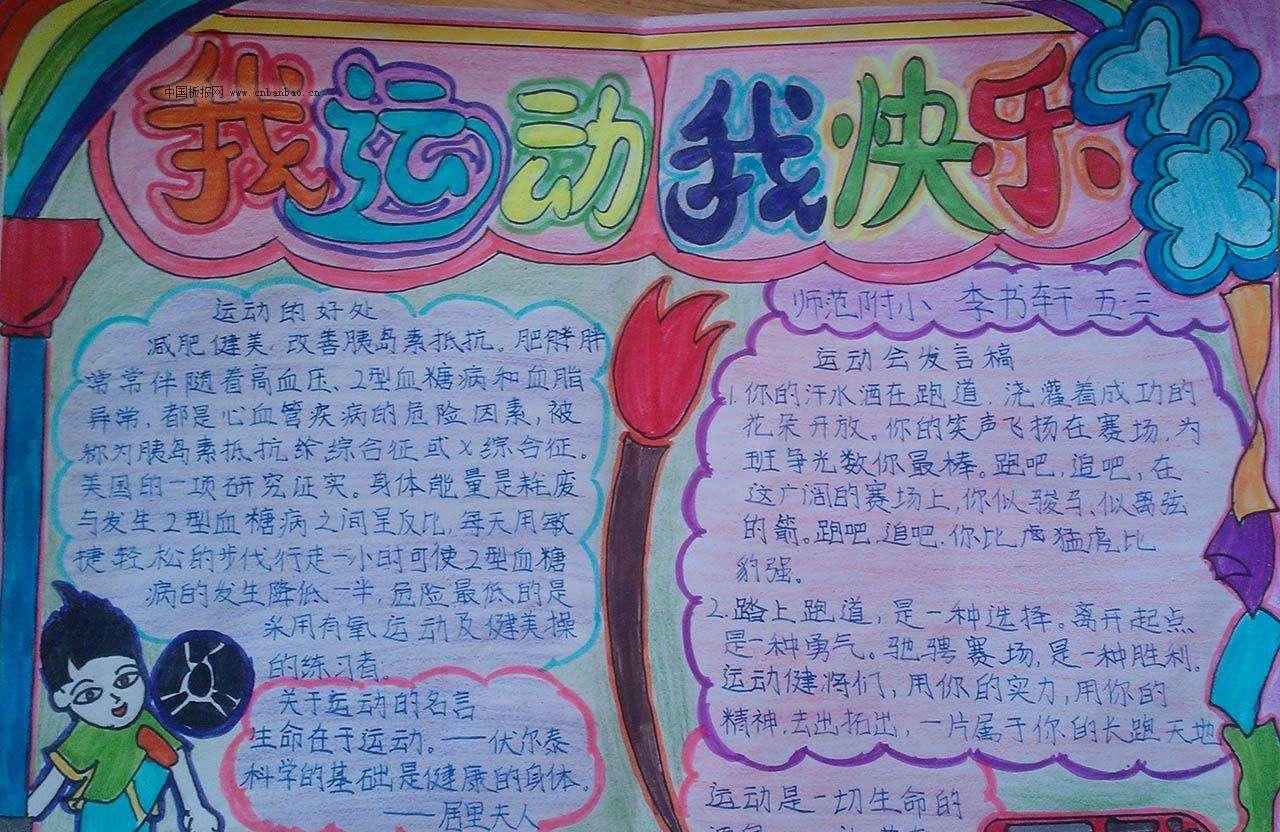 中国板报网 www.cnbanbao.cn
我运动 我快乐
运动的好处
减肥健美,改善胰岛素抵抗。肥胖
常常伴随着高血压、2型血糖病和血脂
异常,都是心血管疾病的危险因素,被
称为胰岛素抵抗给综合征或X综合征。
美国的一项研究证实。身体能量是耗废
与发生2型血糖病之间呈反比,每天用敏
捷轻松的步代行走一小时可使2型血糖
病的发生降低一半,危险最低的是
采用有氧运动及健美操
的练习者。
关于运动的名言
生命在于运动。——伏尔泰
科学的基础是健康的身体。
——居里夫人
师范附小 李书轩 五·三
运动会发言稿
1.你的汗水洒在跑道,浇灌着成功的
花朵开放。你的笑声飞扬在赛场,为
班争光数你最棒。跑吧,追吧,在
这广阔的赛场上,你似骏马,似离弦
的箭。跑吧,追吧,你比虎猛虎比
豹强。
2.踏上跑道,是一种选择。离开起点
是一种勇气。驰骋赛场,是一种胜利。
运动健将们,用你的实力,用你的
精神,去出拓出,一片属于你的长跑天地
运动是一切生命的